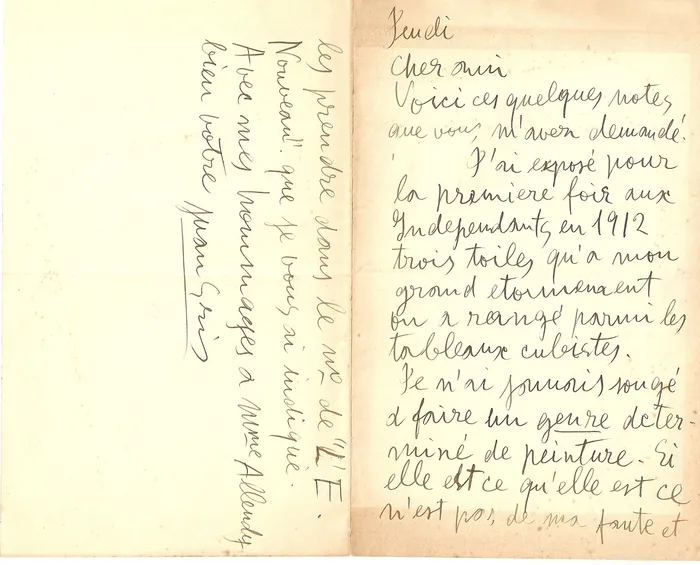 Jeudi
Cher ami
Voici ces quelques notes
que vous m'avez demandé.
J'ai exposé pour
la premiere fois aux
Independants en 1912
trois toiles qu'a mon
grand etonnement
on a rangé parmi les
tableaux cubistes.
Je n'ai jamais songé
a faire un genre deter-
miné de peinture. Si
elle est ce qu'elle est ce
n'est pas de ma faute et
les prendre dans le no de "L'E.
Nouveau" que je vous ai indiqué.
Avec mes hommages a Mme Allendy
bien votre Juan Gris